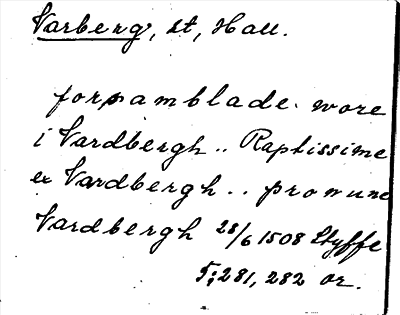 Varberg, st, Hall.
forsamblade. wore
i Vardbergh.. Raptissime
ex Vardbergh.. pro nunc
Vardbergh 28/6 1508 Styffe
5:281, 282 or.